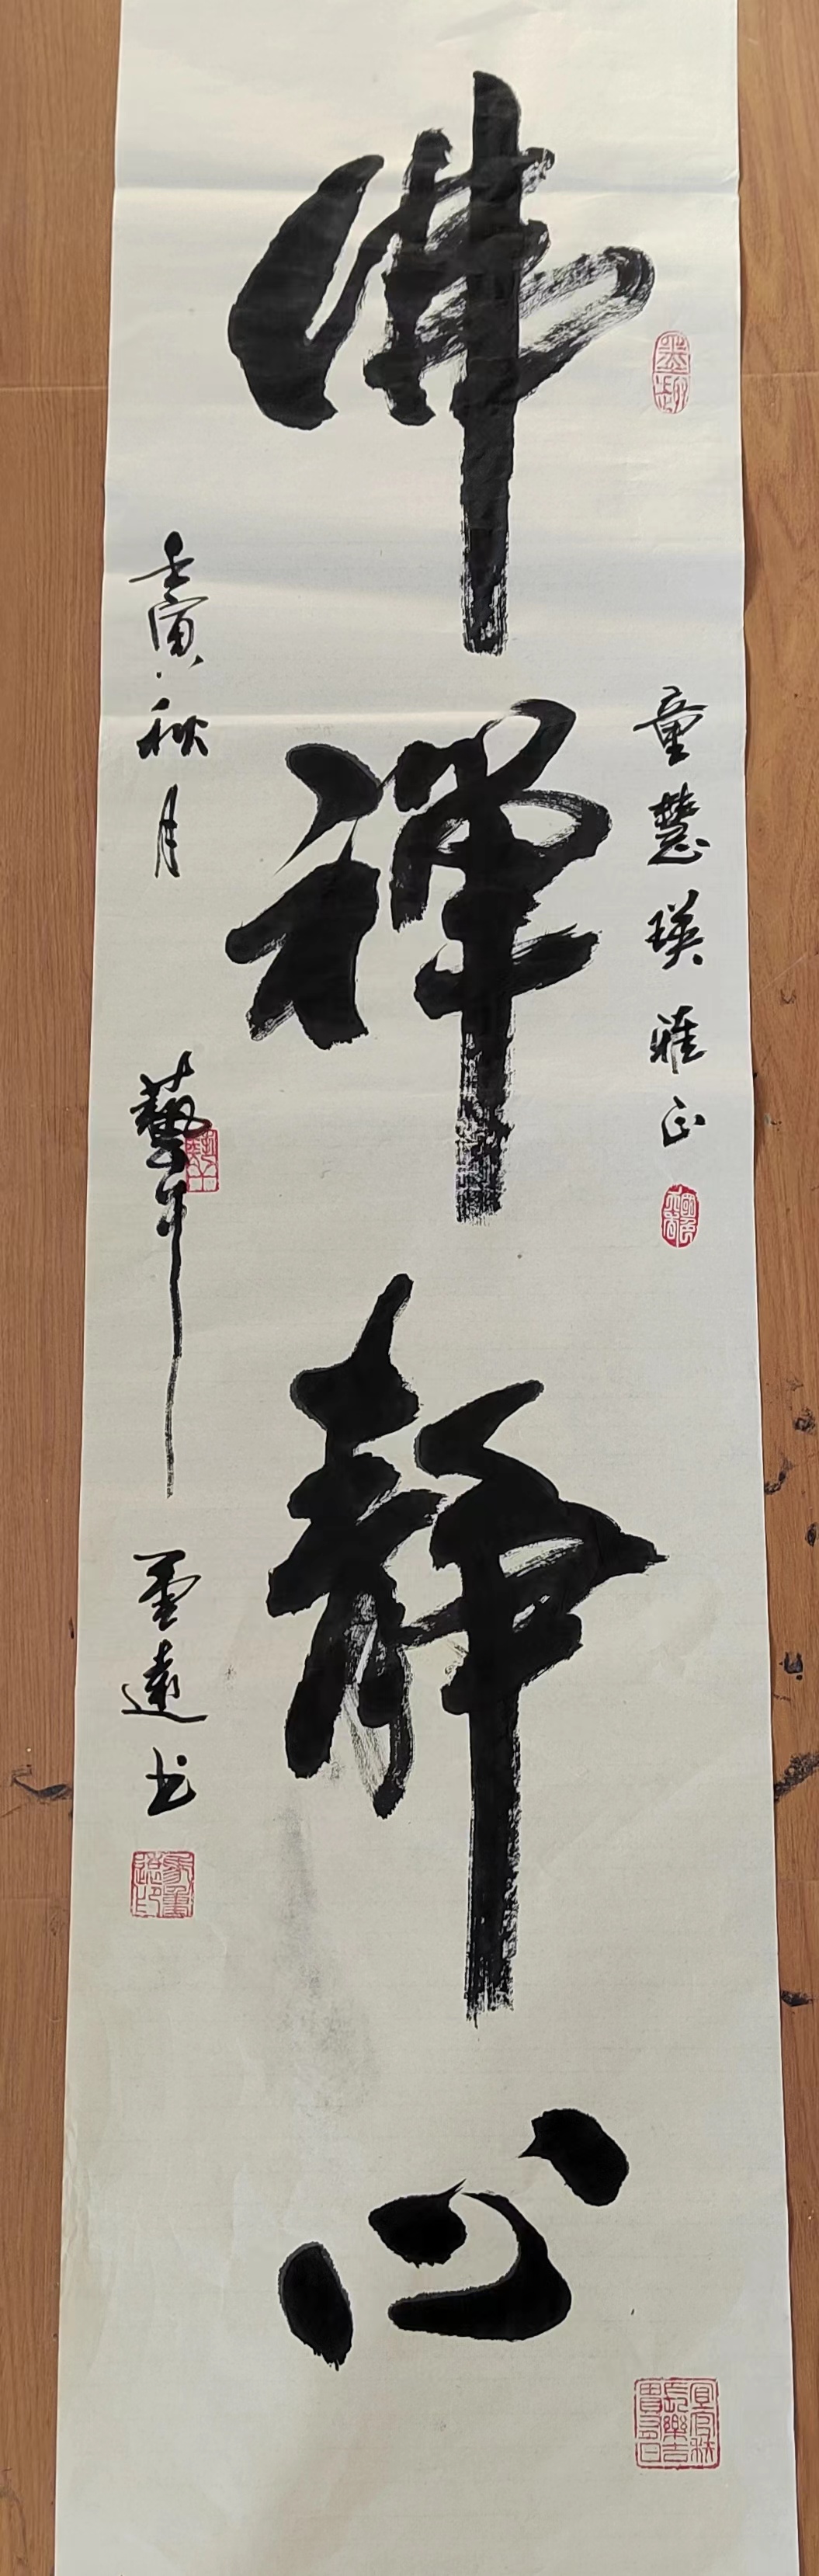 童慧瑛雅正
佛禅静心
壬寅秋月
墨遠书